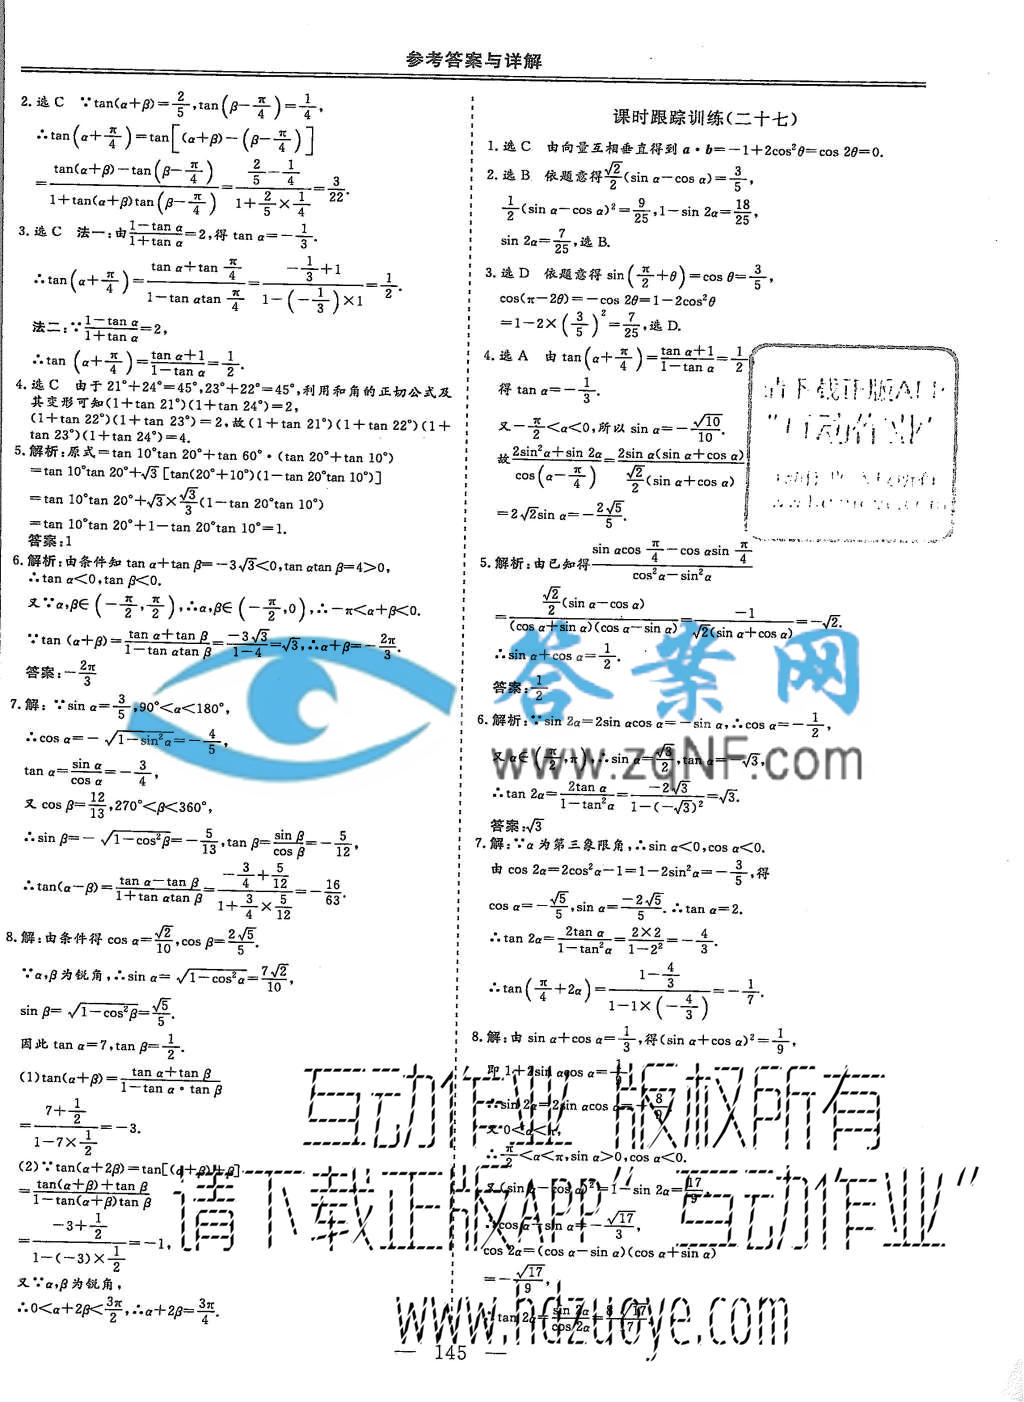 参考答案与详解
2. 选 C ∵tan(α+β)=2/5,tan(β-π/4)=1/4,
∴tan(α+π/4)=tan[(α+β)-(β-π/4)]
=(tan(α+β)-tan(β-π/4))/(1+tan(α+β)tan(β-π/4))=(2/5-1/4)/(1+2/5×1/4)=3/22.
3. 选 C 法一:由(1-tan α)/(1+tan α)=2,得 tan α=-1/3.
∴tan(α+π/4)=(tan α+tan π/4)/(1-tan αtan π/4)=(-1/3+1)/(1-(-1/3)×1)=1/2.
法二:∵(1-tan α)/(1+tan α)=2,
∴tan (α+π/4)=(tan α+1)/(1-tan α)=1/2.
4. 选 C 由于 21°+24°=45°,23°+22°=45°,利用和角的正切公式及
其变形可知(1+tan 21°)(1+tan 24°)=2,
(1+tan 22°)(1+tan 23°)=2,故(1+tan 21°)(1+tan 22°)(1+
tan 23°)(1+tan 24°)=4.
5. 解析:原式=tan 10°tan 20°+tan 60°·(tan 20°+tan 10°)
=tan 10°tan 20°+√3[tan(20°+10°)(1-tan 20°tan 10°)]
=tan 10°tan 20°+√3×√3/3(1-tan 20°tan 10°)
=tan 10°tan 20°+1-tan 20°tan 10°=1.
答案:1
6. 解析:由条件知 tan α+tan β=-3√3<0,tan αtan β=4>0,
∴tan α<0,tan β<0.
又∵α,β∈(-π/2,π/2),∴α,β∈(-π/2,0),∴-π<α+β<0.
∵tan (α+β)=(tan α+tan β)/(1-tan αtan β)=(-3√3)/(1-4)=√3,∴α+β=-2π/3.
答案:-2π/3
7. 解:∵sin α=3/5,90°<α<180°,
∴cos α=-√(1-sin²α)=-4/5,
tan α=sin α/cos α=-3/4,
又 cos β=12/13,270°<β<360°,
∴sin β=-√(1-cos²β)=-5/13,tan β=sin β/cos β=-5/12,
∴tan(α-β)=(tan α-tan β)/(1+tan αtan β)=(-3/4+5/12)/(1+3/4×5/12)=-16/63.
8. 解:由条件得 cos α=√2/10,cos β=2√5/5.
∵α,β为锐角,∴sin α=√(1-cos²α)=7√2/10,
sin β=√(1-cos²β)=√5/5.
因此 tan α=7,tan β=1/2.
(1)tan(α+β)=(tan α+tan β)/(1-tan α·tan β)
=(7+1/2)/(1-7×1/2)=-3.
(2)∵tan(α+2β)=tan[(α+β)+β]
=(tan(α+β)+tan β)/(1-tan(α+β)tan β)
=(-3+1/2)/(1-(-3)×1/2)=-1,
又∵α,β为锐角,
∴0<α+2β<3π/2,∴α+2β=3π/4.
课时跟踪训练(二十七)
1. 选 C 由向量互相垂直得到 a·b=-1+2cos²θ=cos 2θ=0.
2. 选 B 依题意得√2/2(sin α-cos α)=3/5,
1/2(sin α-cos α)²=9/25,1-sin 2α=18/25,
sin 2α=7/25,选 B.
3. 选 D 依题意得 sin(π/2+θ)=cos θ=3/5,
cos(π-2θ)=-cos 2θ=1-2cos²θ
=1-2×(3/5)²=7/25,选 D.
4. 选 A 由 tan(α+π/4)=(tan α+1)/(1-tan α)=1/2
得 tan α=-1/3.
又-π/2<α<0,所以 sin α=-√10/10.
故(2sin²α+sin 2α)/cos(α-π/4)=(2sin α(sin α+cos α))/(√2/2(sin α+cos α))
=2√2sin α=-2√5/5.
5. 解析:由已知得(sin αcos π/4-cos αsin π/4)/(cos²α-sin²α)
=(√2/2(sin α-cos α))/((cos α+sin α)(cos α-sin α))=-1/(√2(sin α+cos α))=-√2.
∴sin α+cos α=1/2.
答案:1/2
6. 解析:∵sin 2α=2sin αcos α=-sin α,∴cos α=-1/2,
又 α∈(π/2,π),∴sin α=√3/2,tan α=-√3,
∴tan 2α=2tan α/(1-tan²α)=-2√3/(1-(-√3)²)=√3.
答案:√3
7. 解:∵α为第三象限角,∴sin α<0,cos α<0.
由 cos 2α=2cos²α-1=1-2sin²α=-3/5,得
cos α=-√5/5,sin α=-2√5/5.∴tan α=2.
∴tan 2α=2tan α/(1-tan²α)=(2×2)/(1-2²)=-4/3.
∴tan(π/4+2α)=(1-4/3)/(1-1×(-4/3))=-1/7.
8. 解:由 sin α+cos α=1/3,得(sin α+cos α)²=1/9,
即 1+2sin αcos α=1/9
∴sin 2α=2sin αcos α=-8/9.
又 0<α<π,
∴π/2<α<π,sin α>0,cos α<0.
又(sin α-cos α)²=1-sin 2α=17/9,
∴cos α-sin α=-√17/3,
cos 2α=(cos α-sin α)(cos α+sin α)
=-√17/9,
∴tan 2α=sin 2α/cos 2α=8√17/17.
请下载正版APP
"互动作业"
答案网
www.zqNF.com
互动作业 版权所有
请下载正版APP"互动作业"
www.hdzuoye.com
— 145 —